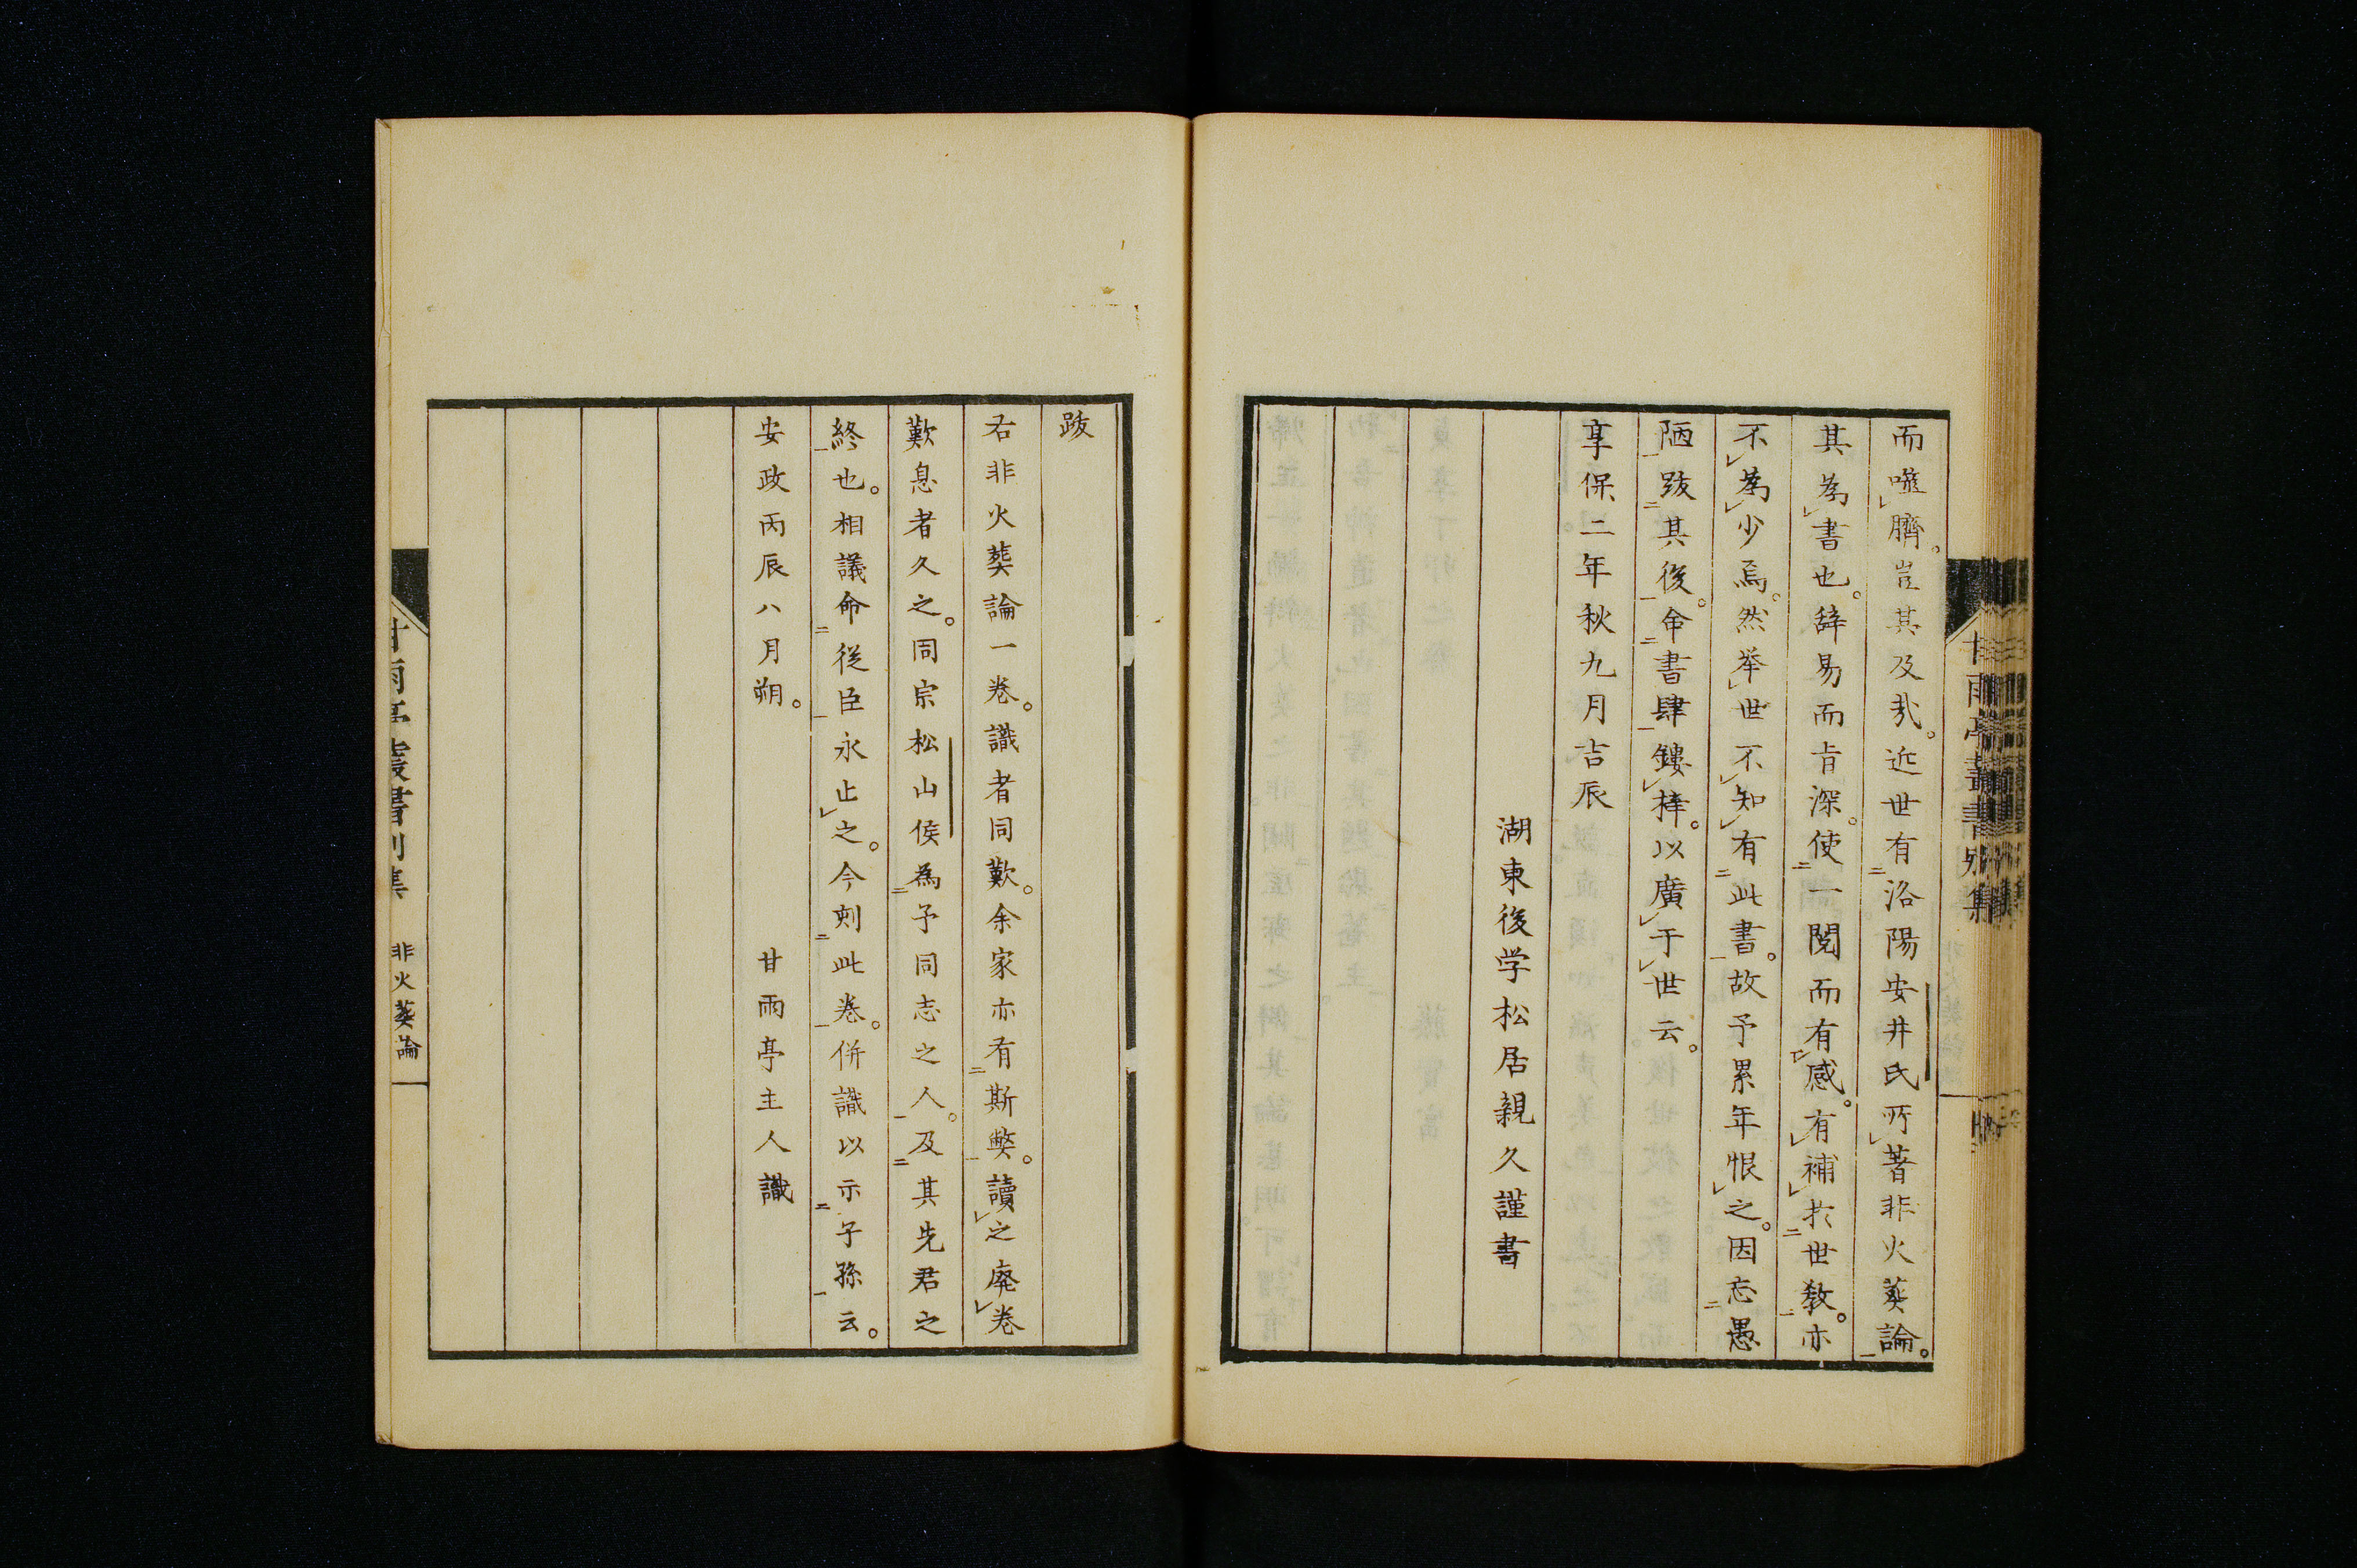 而噬臍。豈其及哉。近世有洛陽安井氏所著非火葬論。
其為書也。辞易而旨深。使一閱而有感。有補於世教。亦
不為少焉。然举世不知有此書。故予累年恨之。因忘愚
陋跋其後。命書肆鏤梓。以廣于世云。
享保二年秋九月吉辰
湖東後学松居親久謹書
甘雨亭叢書別集
跋
右非火葬論一卷。識者同歎。余家亦有斯弊。讀之廃卷
歎息者久之。同宗松山侯為予同志之人。及其先君之
終也。相議命従臣永止之。今刻此卷。併識以示子孫云。
安政丙辰八月朔。
甘雨亭主人識
甘雨亭叢書別集 非火葬論